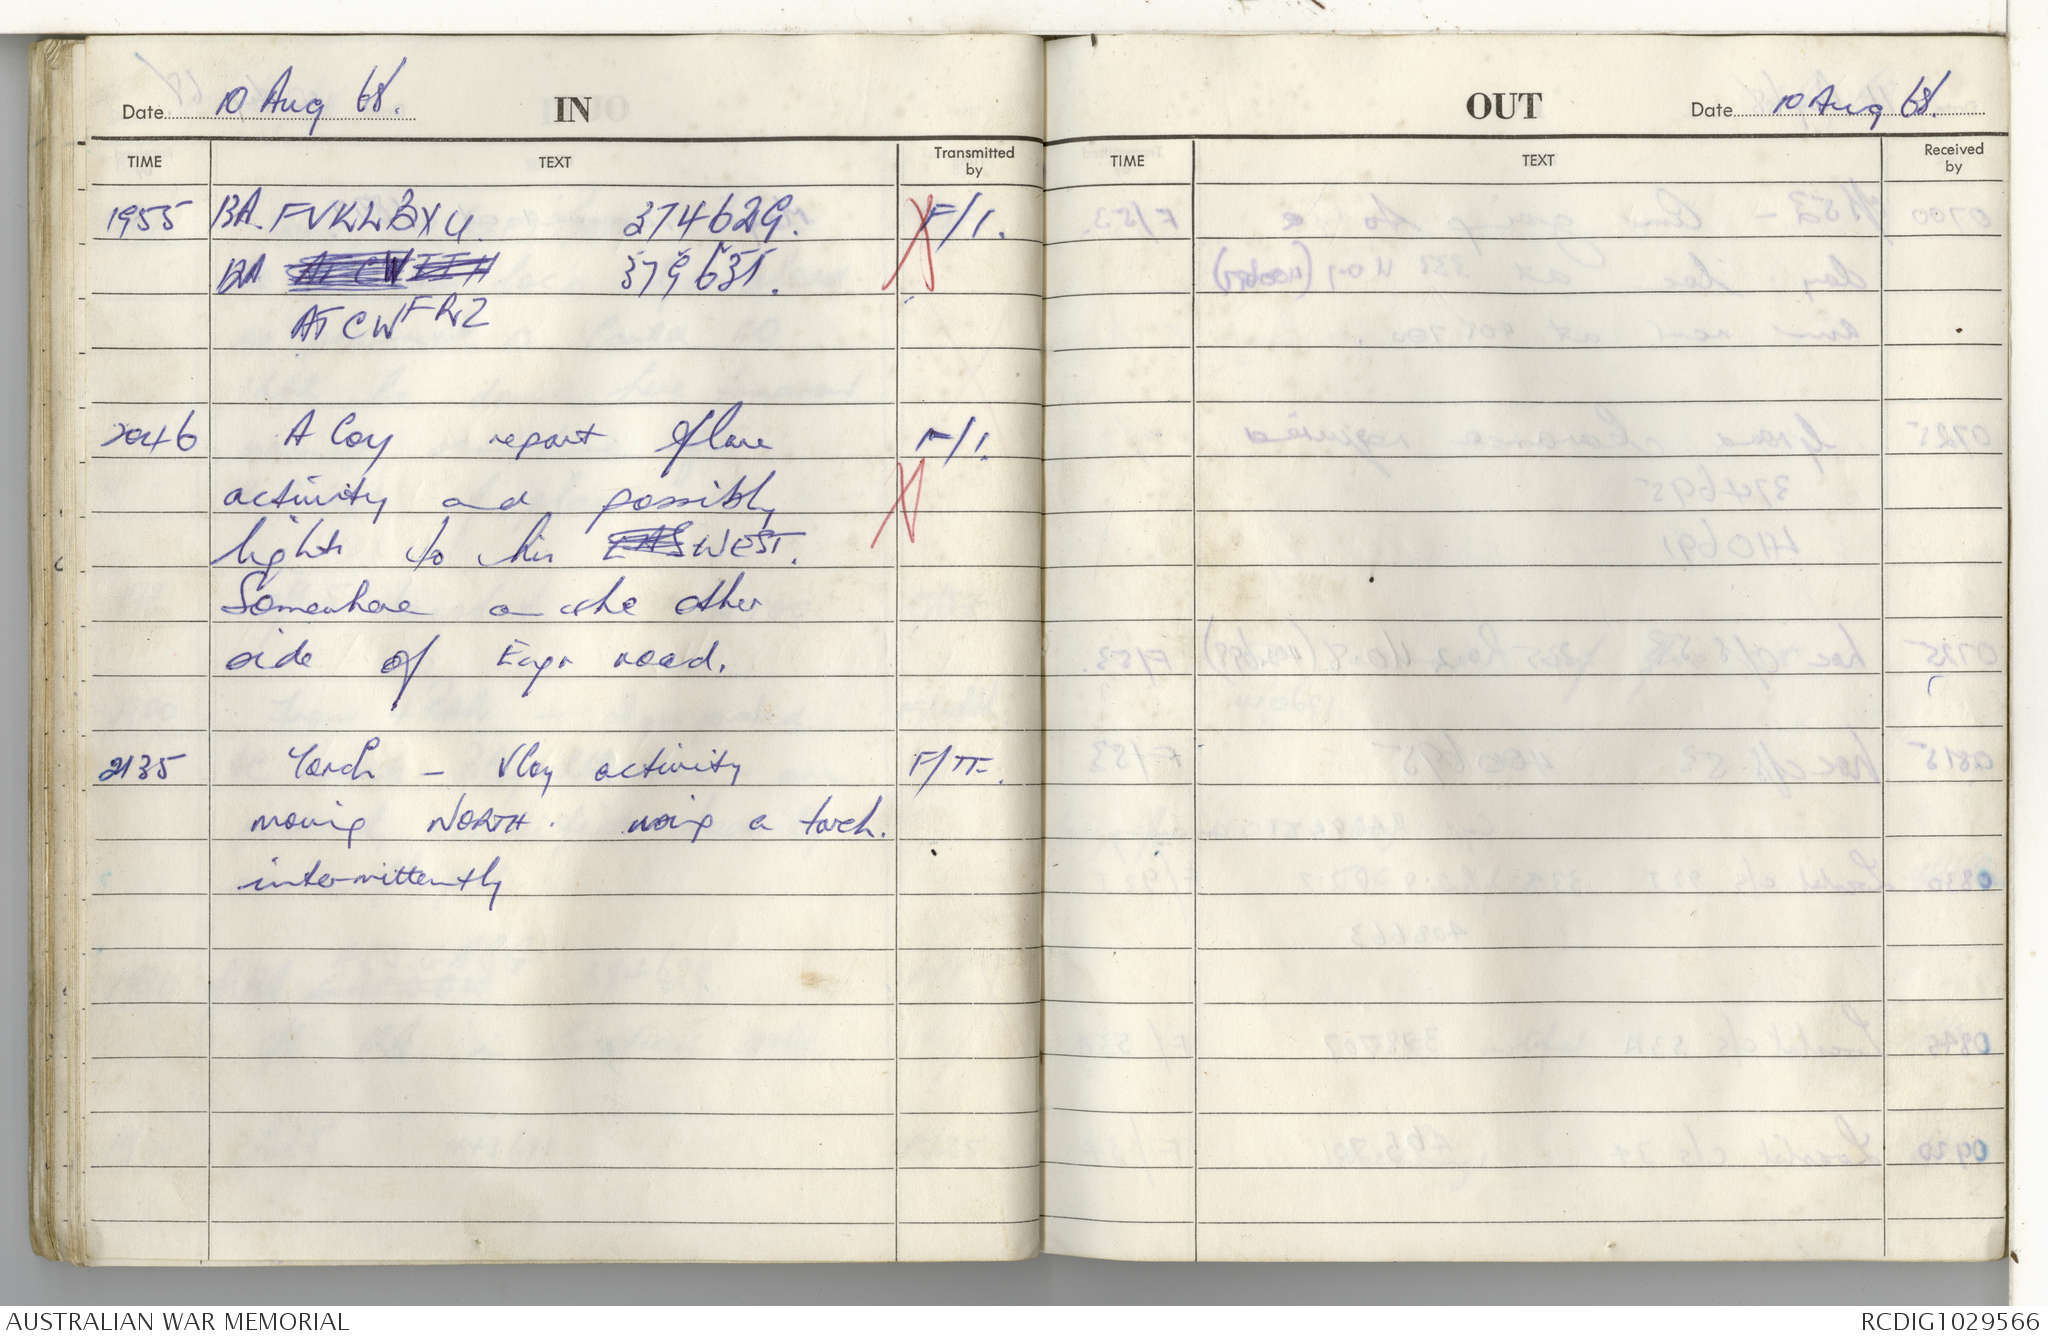 Date 10 Aug 68. IN
TIME TEXT Transmitted by
1955 BA. FVKLBXU. 374629. F/1.
BA 379635.
ATCWFRZ
2046 A Coy report flare F/1.
activity and possibly
lights to his WEST.
Somewhere on the other
side of Engr road.
2135 Torch - activity F/TF.
moving NORTH. using a torch.
intermittently
OUT Date 10 Aug 68.
TIME TEXT Received by
AUSTRALIAN WAR MEMORIAL RCDIG1029566